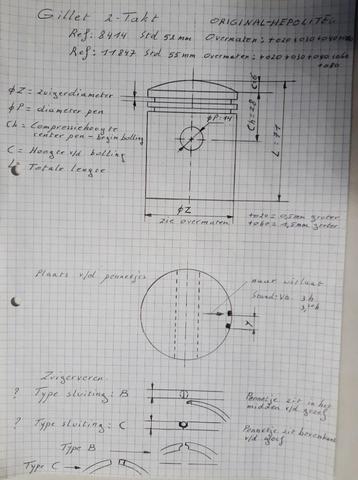 Gillet 2-Takt ORIGINAL-HEPOLITE
Ref: 8414 Std 52mm Overmaten: +020+030+040+060
Ref: 11847 Std 55mm Overmaten: +020+030+040+060
+080
ØZ = zuigerdiameter
ØP = diameter pen
Ch = Compressiehoogte
center pen - begin bolling
C = Hoogte v/d bolling
L = Totale lengte
ØP=14
C=6
Ch=28
L=71
ØZ
zie overmaten
+020 = 0,5mm groter
+060 = 1,5mm groter
Plaats v/d pennetjes
naar uitlaat
Stand:
3 h
Y
Zuigerveren
? Type sluiting: B
Pennetje zit in het
midden v/d groef
? Type sluiting: C
Pennetje zit bovenkant
v/d groef
Type B
Type C